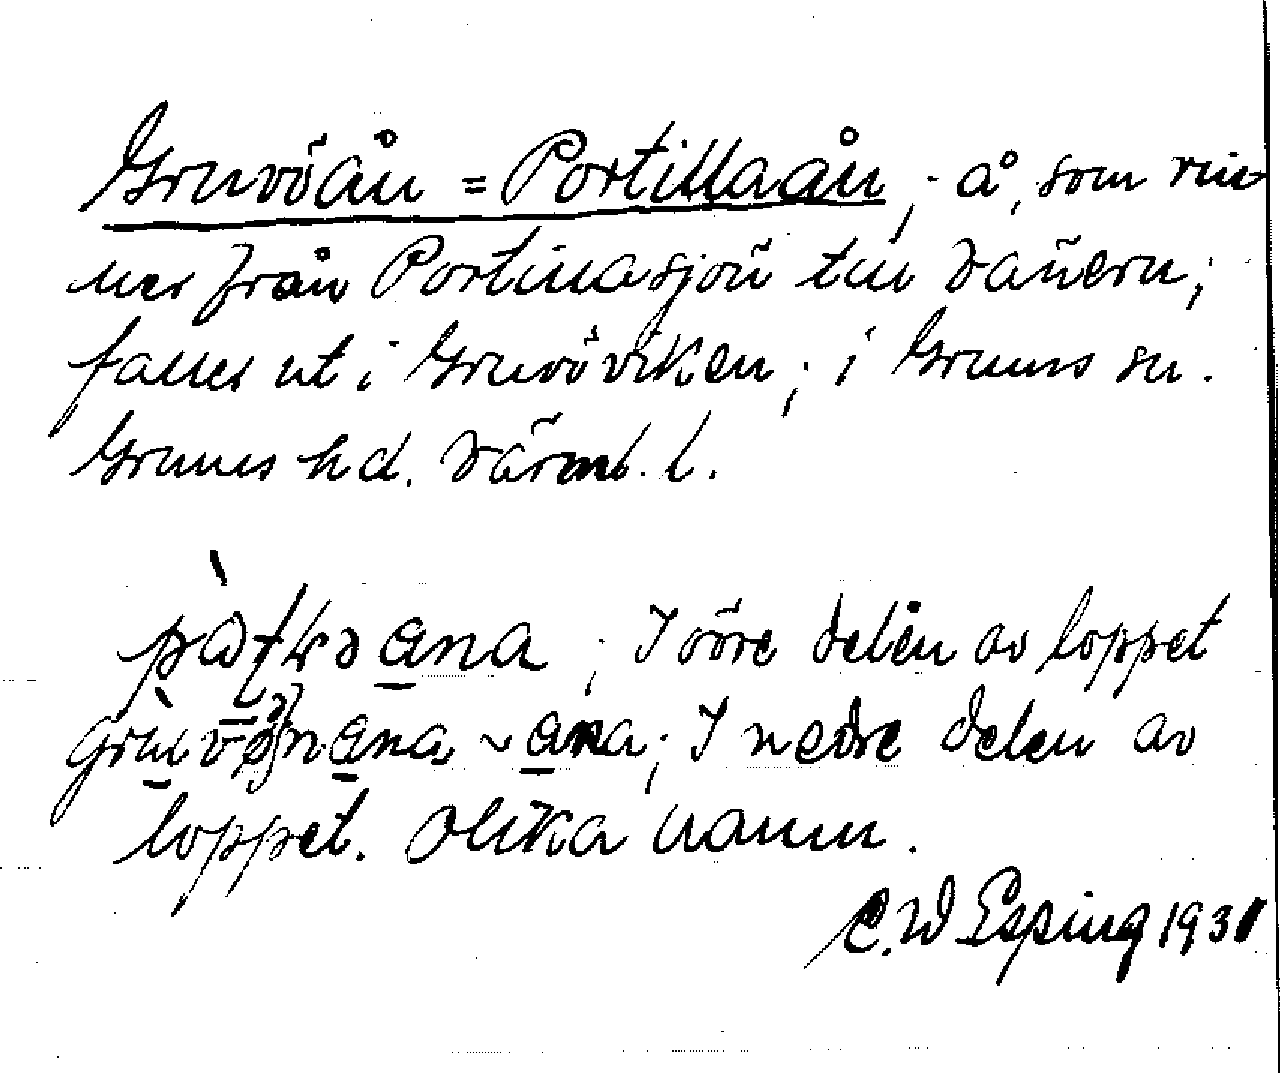 Gruvöån = Portillaån; - å, som rin-
ner från Portillasjön till Vänern;
faller ut i Gruvöviken; i Grums sn.
Grums hd. Värml. l.
ana ; I övre delen av loppet
~ ana; I nedre delen av
loppet. Olika namn.
C.W Esping 1931